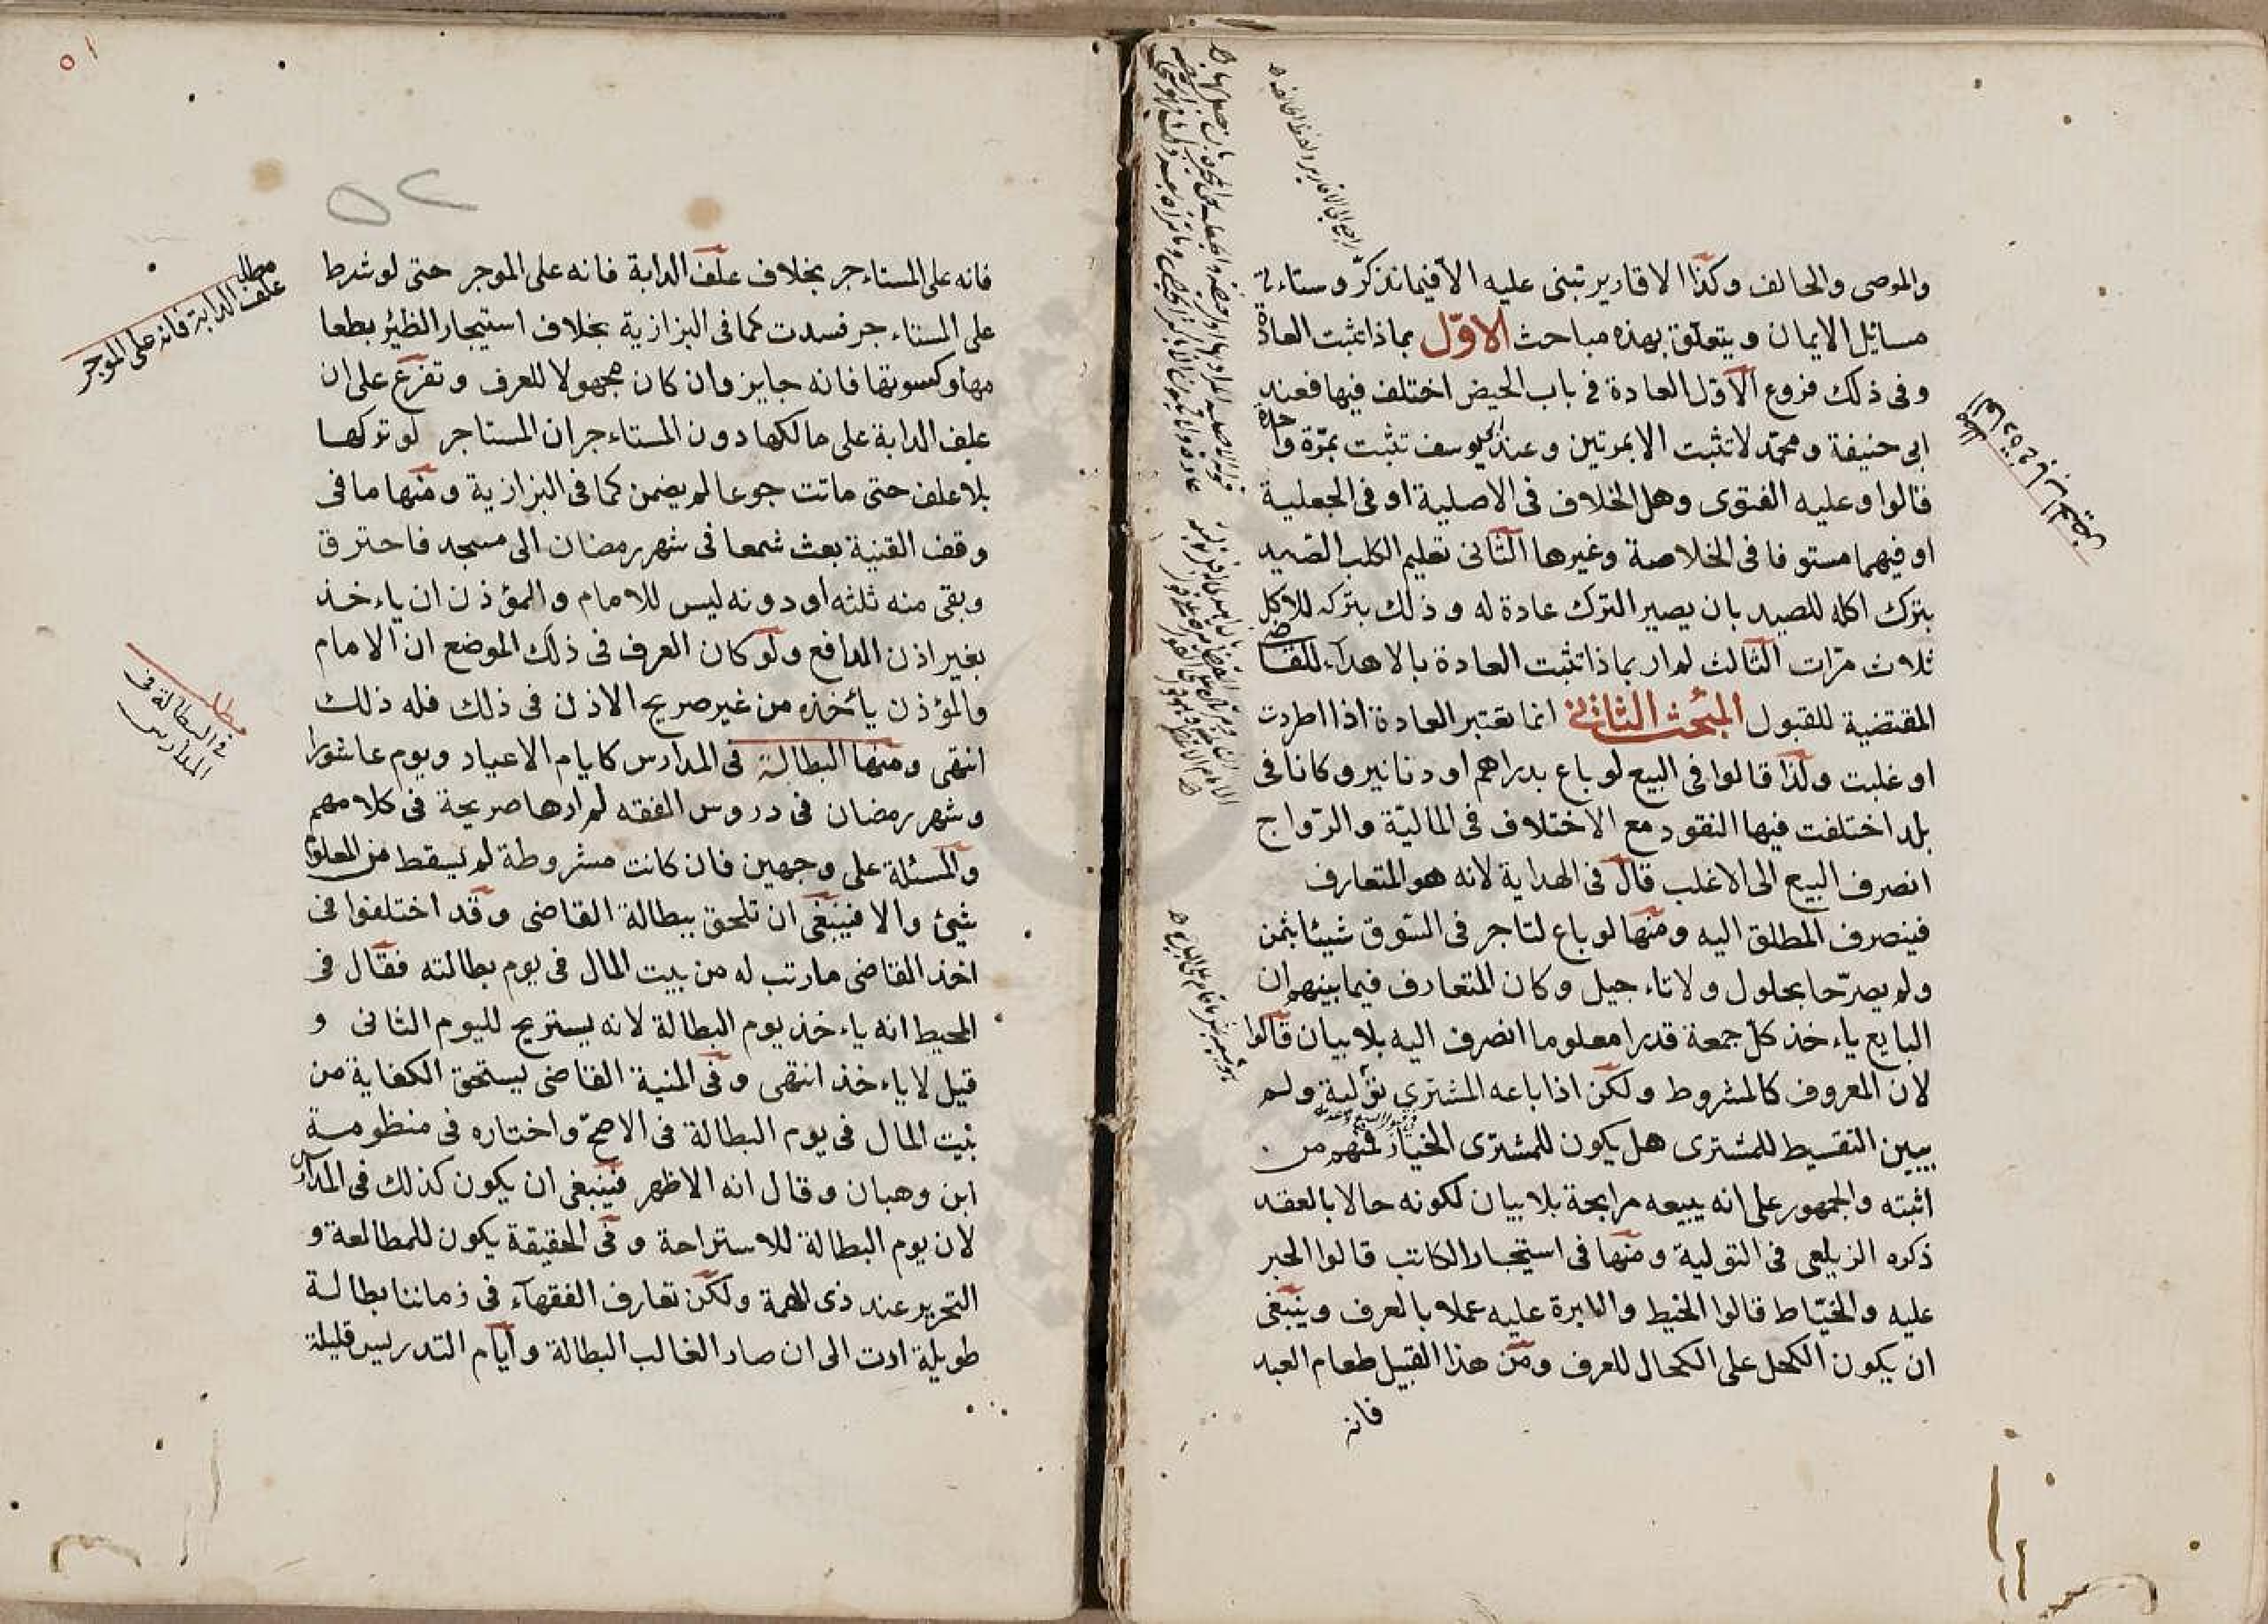 والموصى والحالف وكذا الاقارير تبنى عليه الا فيما نذكر وستاءتى
مسائل الايمان ويتعلق بهذه مباحث الاوّل بماذا تثبت العادة
وفى ذلك فروع الاوّل العادة فى باب الحيض اختلف فيها فعند
ابى حنيفة ومحمّد لا تثبت الا بمرتين وعند ابى يوسف تثبت بمرّة واحدة
قالوا وعليه الفتوى وهل الخلاف فى الاصلية او فى الجعلية
او فيهما مستوفا فى الخلاصة وغيرها الثانى تعليم الكلب الصيد
بترك اكله للصيد بان يصير الترك عادة له وذلك بتركه للاكل
ثلاث مرّات الثالث لم ار بماذا تثبت العادة بالاهدآء للقاضى
المقتضية للقبول المبحث الثانى انما تعتبر العادة اذا اطردت
او غلبت ولذا قالوا فى البيع لو باع بدراهم او دنانير وكانا فى
بلد اختلفت فيها النقود مع الاختلاف فى الماليّة والرّواج
انصرف البيع الى الاغلب قال فى الهداية لانه هو المتعارف
فينصرف المطلق اليه ومنها لو باع لتاجر فى السّوق شيئا بثمن
ولم يصرّحا بحلول ولا تاءجيل وكان المتعارف فيما بينهم ان
البايع ياءخذ كلّ جمعة قدرا معلوما انصرف اليه بلا بيان قالوا
لان المعروف كالمشروط ولكن اذا باعه المشترى تولية ولم
يبين التقسيط للمشترى هل يكون للمشترى الخيار فمنهم من
اثبته والجمهور على انه يبيعه مرابحة بلا بيان لكونه حالا بالعقد
ذكره الزيلعى فى التولية ومنها فى استيجار الكاتب قالوا الحبر
عليه والخيّاط قالوا الخيط والابرة عليه عملا بالعرف وينبغى
ان يكون الكحل على الكحال للعرف ومن هذا القبيل طعام العبد
فانه
٥١
٥٢
فانه على المستاءجر بخلاف علف الدابة فانه على الموجر حتى لو شرط
على المستاءجر فسدت كما فى البزازية بخلاف استيجار الظئر بطعا
مها وكسوتها فانه جايز وان كان مجهولا للعرف وتفرّع على ان
علف الدابة على مالكها دون المستاءجر ان المستاجر لو تركها
بلا علف حتى ماتت جوعا لم يضمن كما فى البزازية ومنها ما فى
وقف القنية بعث شمعا فى شهر رمضان الى مسجد فاحترق
وبقى منه ثلثه او دونه ليس للامام والمؤذن ان ياءخذ
بغير اذن الدافع ولو كان العرف فى ذلك الموضع ان الامام
والمؤذن يأخذه من غير صريح الاذن فى ذلك فله ذلك
انتهى ومنها البطالة فى المدارس كايام الاعياد ويوم عاشورا
وشهر رمضان فى دروس الفقه لم ارها صريحة فى كلامهم
والمسئلة على وجهين فان كانت مشروطة لم يسقط من المعلوم
شيئ والا فينبغى ان تلحق ببطالة القاضى وقد اختلفوا فى
اخذ القاضى ما رتب له من بيت المال فى يوم بطالته فقال فى
المحيط انه ياءخذ يوم البطالة لانه يستريح لليوم الثانى و
قيل لا ياءخذ انتهى وفى المنية القاضى يستحق الكفاية من
بيت المال فى يوم البطالة فى الاصحّ واختاره فى منظومة
ابن وهبان وقال انه الاظهر فينبغى ان يكون كذلك فى المدارس
لان يوم البطالة للاستراحة وفى الحقيقة يكون للمطالعة و
التحرير عند ذى الهمة ولكن تعارف الفقهآء فى زماننا بطالة
طويلة ادت الى ان صار الغالب البطالة وايّام التدريس قليلة
مطلب
علف الدابة فانه على الموجر
مطلب
فى البطالة فى
المدارس